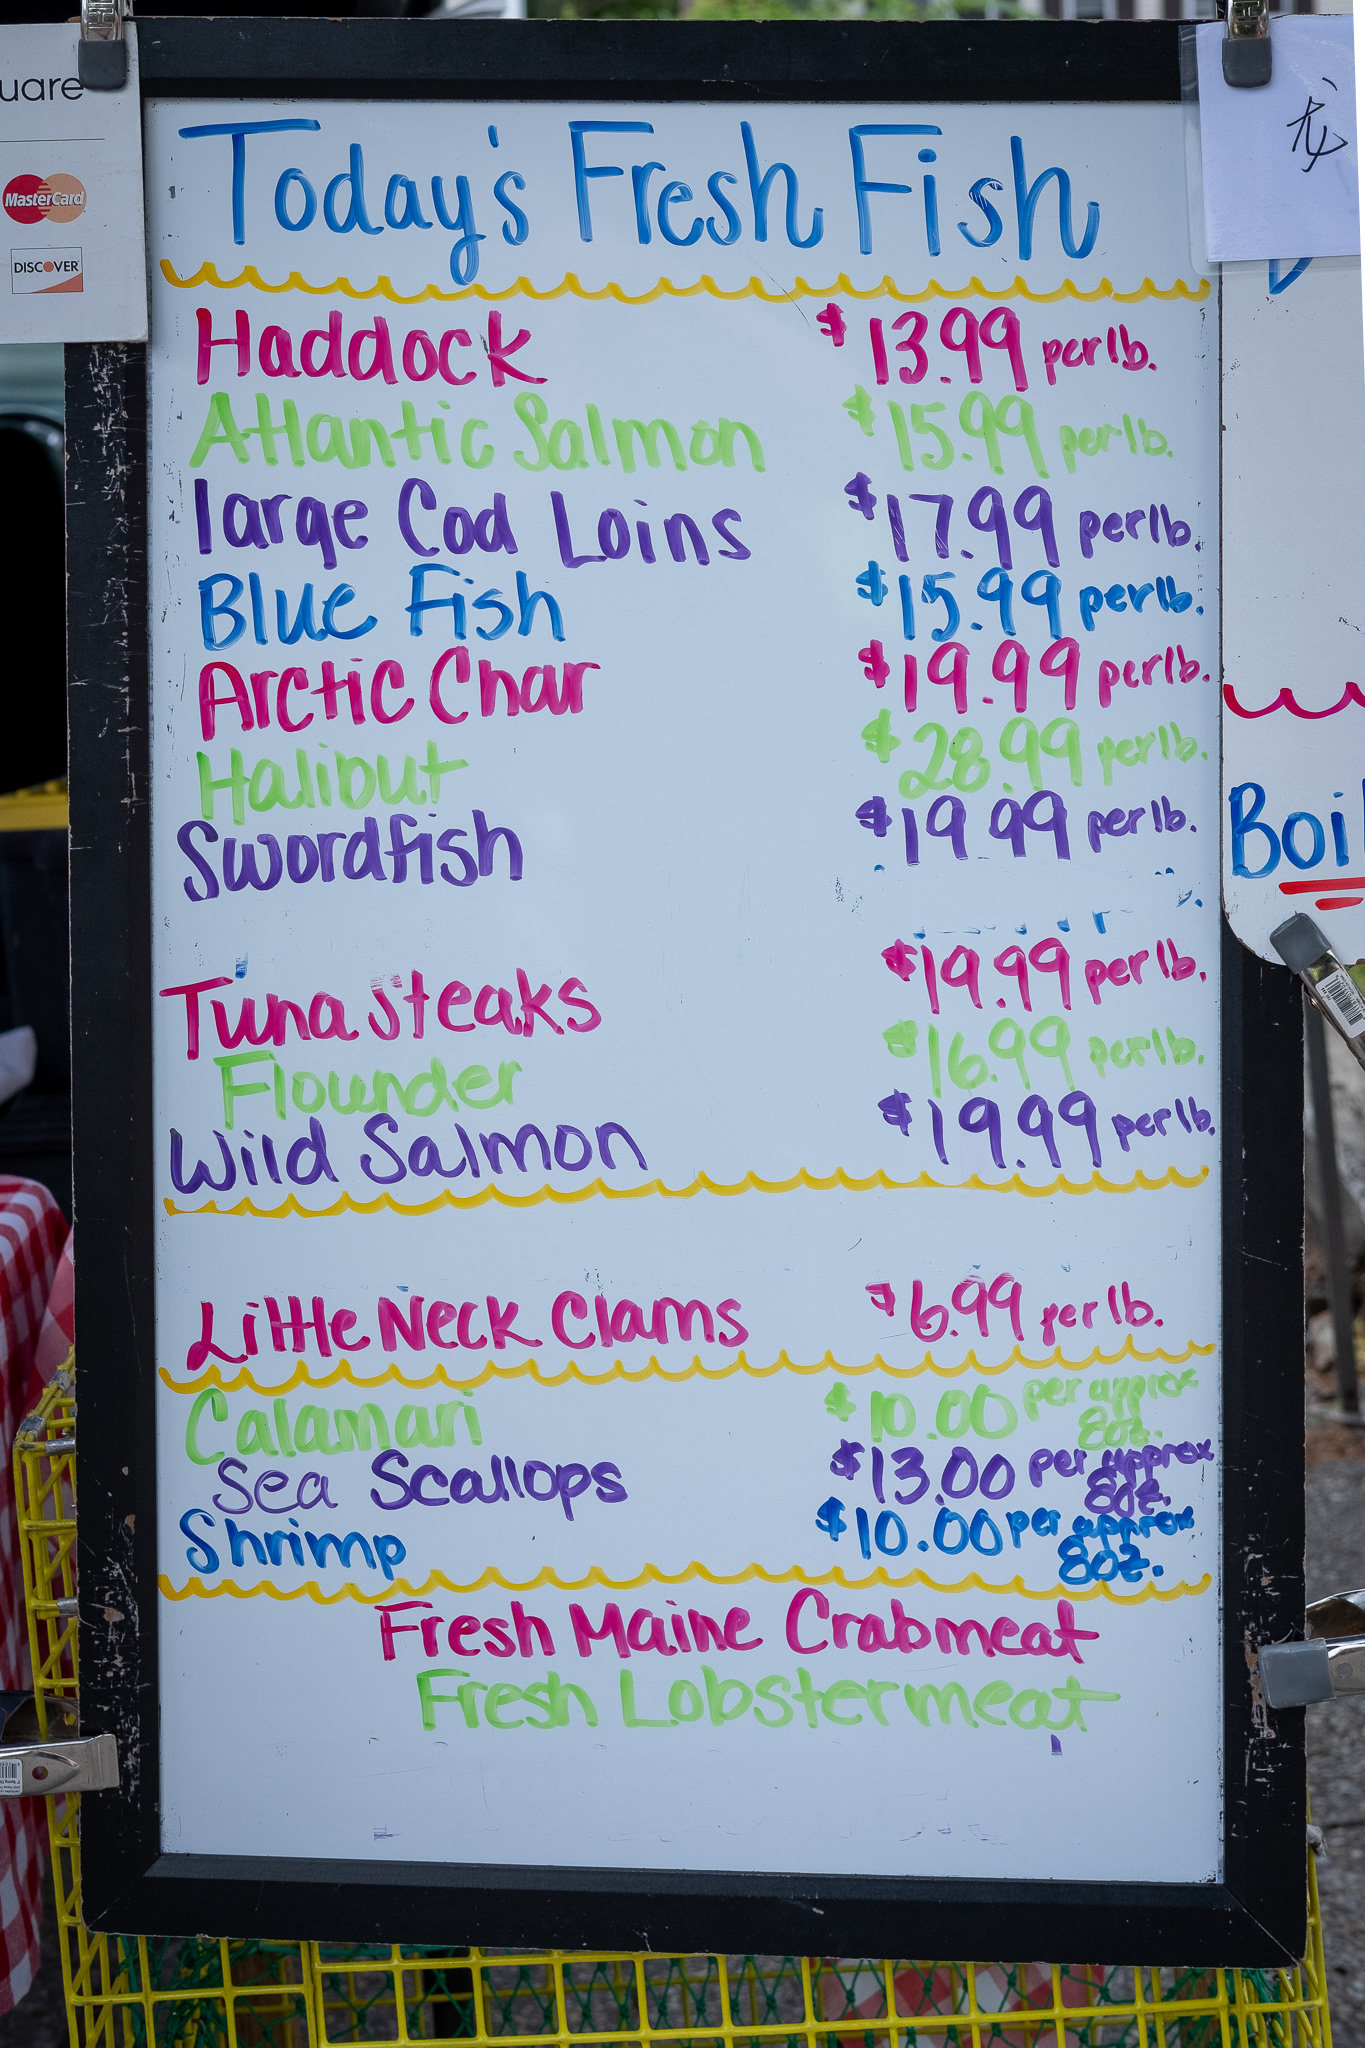 uare
MasterCard
DISCOVER
Today's Fresh Fish
Haddock $13.99 per lb.
Atlantic Salmon $15.99 per lb.
large Cod Loins $17.99 per lb.
Blue Fish $15.99 per lb.
Arctic Char $19.99 per lb.
Halibut $28.99 per lb.
Swordfish $19.99 per lb.
Tuna Steaks $19.99 per lb.
Flounder $16.99 per lb.
Wild Salmon $19.99 per lb.
Little Neck Clams $6.99 per lb.
Calamari $10.00 per approx 8oz.
Sea Scallops $13.00 per approx 8oz.
Shrimp $10.00 per approx 8oz.
Fresh Maine Crabmeat
Fresh Lobstermeat
Boi